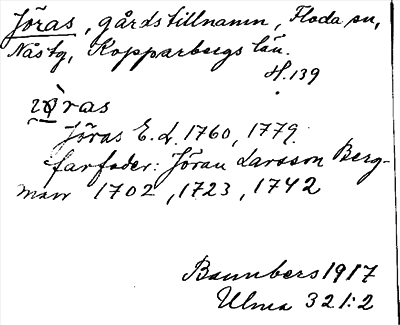 Jöras, gårdstillnamn, Floda sn,
Nåstg, Kopparbergs län.
H. 139
ras
Jöras E. L. 1760, 1779.
farfader: Jöran Larsson Berg-
man 1702, 1723, 1742
Bannbers 1917
Ulma 321:2